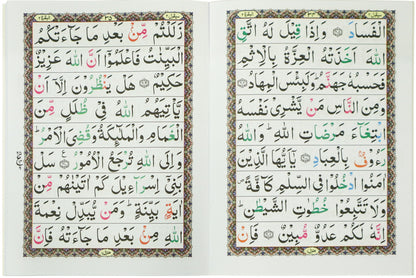 الْفَسَادَ وَاِذَا قِيْلَ لَهُ اتَّقِ
اللّٰهَ اَخَذَتْهُ الْعِزَّةُ بِالْاِثْمِ
فَحَسْبُهٗ جَهَنَّمُ وَلَبِئْسَ الْمِهَادُ
وَمِنَ النَّاسِ مَنْ يَّشْرِىْ نَفْسَهُ
ابْتِغَآءَ مَرْضَاتِ اللّٰهِ وَاللّٰهُ
رَءُوْفٌۢ بِالْعِبَادِ يٰٓاَيُّهَا الَّذِيْنَ
اٰمَنُوا ادْخُلُوْا فِى السِّلْمِ كَآفَّةً
وَلَا تَتَّبِعُوْا خُطُوٰتِ الشَّيْطٰنِ
اِنَّهٗ لَكُمْ عَدُوٌّ مُّبِيْنٌ فَاِنْ
زَلَلْتُمْ مِّنْۢ بَعْدِ مَا جَآءَتْكُمُ
الْبَيِّنٰتُ فَاعْلَمُوْٓا اَنَّ اللّٰهَ عَزِيْزٌ
حَكِيْمٌ هَلْ يَنْظُرُوْنَ اِلَّآ اَنْ
يَّاْتِيَهُمُ اللّٰهُ فِىْ ظُلَلٍ مِّنَ
الْغَمَامِ وَالْمَلٰٓئِكَةُ وَقُضِىَ الْاَمْرُ
وَاِلَى اللّٰهِ تُرْجَعُ الْاُمُوْرُ سَلْ
بَنِىْٓ اِسْرَآءِيْلَ كَمْ اٰتَيْنٰهُمْ مِّنْ
اٰيَةٍۢ بَيِّنَةٍ وَمَنْ يُّبَدِّلْ نِعْمَةَ
اللّٰهِ مِنْۢ بَعْدِ مَا جَآءَتْهُ فَاِنَّ